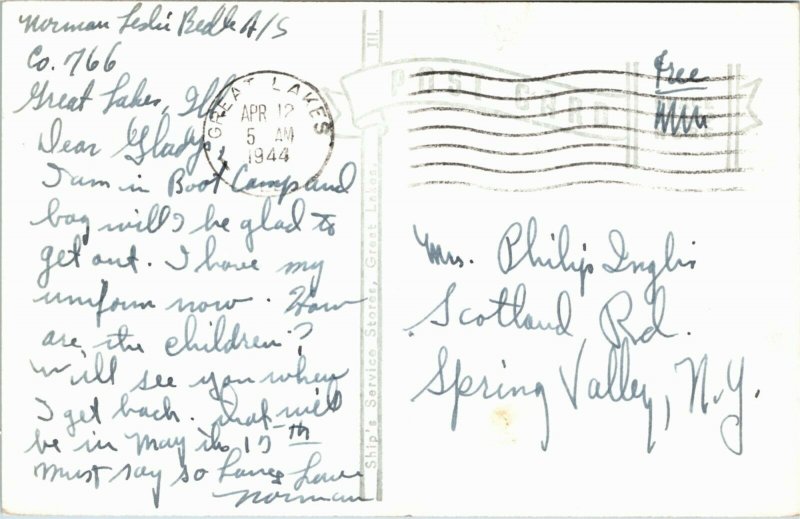 Norman Leslie Bedle A/S
Co. 766
Great Lakes, Ill.
Dear Gladys,
I am in Boot Camp and
boy will I be glad to
get out. I have my
uniform now. How
are the children?
Will see you when
I get back. that will
be in May the 17th
must say so long Love
Norman
GREAT LAKES
APR 12
5 AM
1944
POST CARD
Free
Mrs. Philip Inglis
Scotland Rd.
Spring Valley, N.Y.
Ship's Service Stores, Great Lakes, Ill.